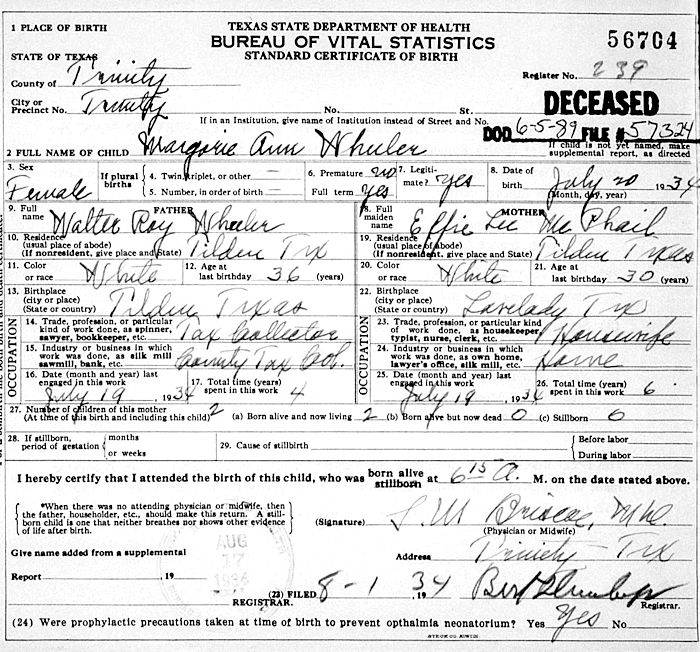 1 PLACE OF BIRTH
TEXAS STATE DEPARTMENT OF HEALTH
BUREAU OF VITAL STATISTICS
STANDARD CERTIFICATE OF BIRTH
56704
STATE OF TEXAS
County of Trinity
Register No. 239
City or Precinct No. Trinity No. St.
DECEASED
If in an Institution, give name of Institution instead of Street and No.
DOD 6-5-89 FILE # 57324
2 FULL NAME OF CHILD Margorie Ann Wheeler
If child is not yet named, make supplemental report, as directed
3. Sex Female
If plural births
4. Twin, triplet, or other
5. Number, in order of birth
6. Premature no
Full term Yes
7. Legitimate? Yes
8. Date of birth July 20 1934
(Month, day, year)
FATHER
9. Full name Walter Roy Wheeler
10. Residence (usual place of abode) (If nonresident, give place and State) Tilden Tex
11. Color or race White
12. Age at last birthday 36 (years)
13. Birthplace (city or place) (State or country) Tilden Texas
OCCUPATION
14. Trade, profession, or particular kind of work done, as spinner, sawyer, bookkeeper, etc. Tax Collector
15. Industry or business in which work was done, as silk mill sawmill, bank, etc. County Tax Col.
16. Date (month and year) last engaged in this work July 19, 1934
17. Total time (years) spent in this work 4
MOTHER
18. Full maiden name Effie Lee McPhail
19. Residence (usual place of abode) (If nonresident, give place and State) Tilden Texas
20. Color or race White
21. Age at last birthday 30 (years)
22. Birthplace (city or place) (State or country) Lovelady Tex
OCCUPATION
23. Trade, profession, or particular kind of work done, as housekeeper, typist, nurse, clerk, etc. Housewife
24. Industry or business in which work was done, as own home, lawyer's office, silk mill, etc. Home
25. Date (month and year) last engaged in this work July 19, 1934
26. Total time (years) spent in this work 6
27. Number of children of this mother (At time of this birth and including this child) 2 (a) Born alive and now living 2 (b) Born alive but now dead 0 (c) Stillborn 0
28. If stillborn, period of gestation months or weeks
29. Cause of stillbirth
Before labor
During labor
I hereby certify that I attended the birth of this child, who was born alive stillborn at 6 15 A. M. on the date stated above.
*When there was no attending physician or midwife, then the father, householder, etc., should make this return. A stillborn child is one that neither breathes nor shows other evidence of life after birth.
(Signature) S. M. Briscoe, M.D.
(Physician or Midwife)
Give name added from a supplemental
Address Trinity Tex
AUG 17 1934
Report , 19
REGISTRAR.
(23) FILED 8-1 1934
Registrar.
(24) Were prophylactic precautions taken at time of birth to prevent opthalmia neonatorium? Yes Yes No